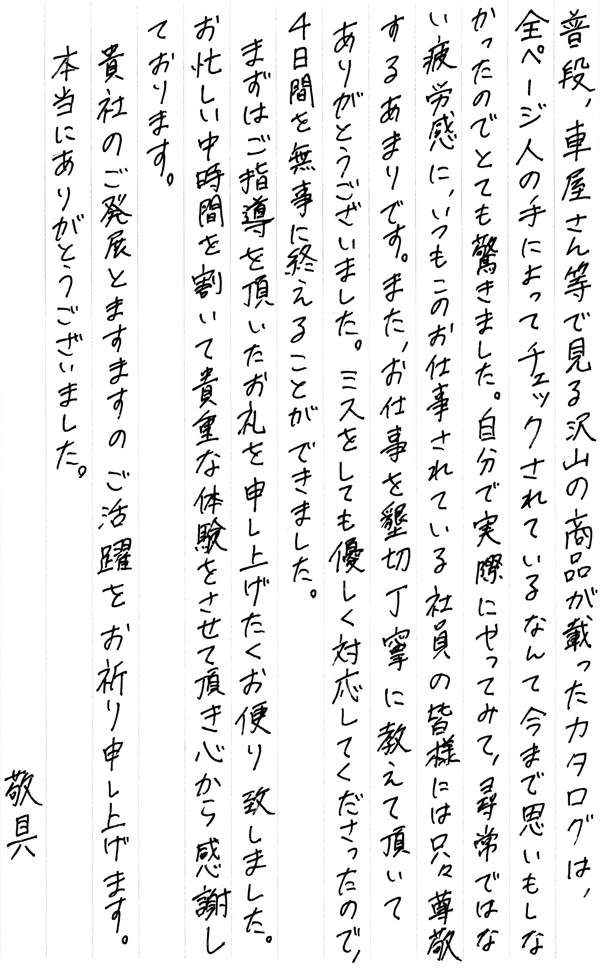 普段、車屋さん等で見る沢山の商品が載ったカタログは、
全ページ人の手によってチェックされているなんて今まで思いもしな
かったのでとても驚きました。自分で実際にやってみて、尋常ではな
い疲労感に、いつもこのお仕事されている社員の皆様には只々尊敬
するあまりです。また、お仕事を懇切丁寧に教えて頂いて
ありがとうございました。ミスをしても優しく対応してくださったので、
4日間を無事に終えることができました。
まずはご指導を頂いたお礼を申し上げたくお便り致しました。
お忙しい中時間を割いて貴重な体験をさせて頂き心から感謝し
ております。
貴社のご発展とますますのご活躍をお祈り申し上げます。
本当にありがとうございました。
敬具